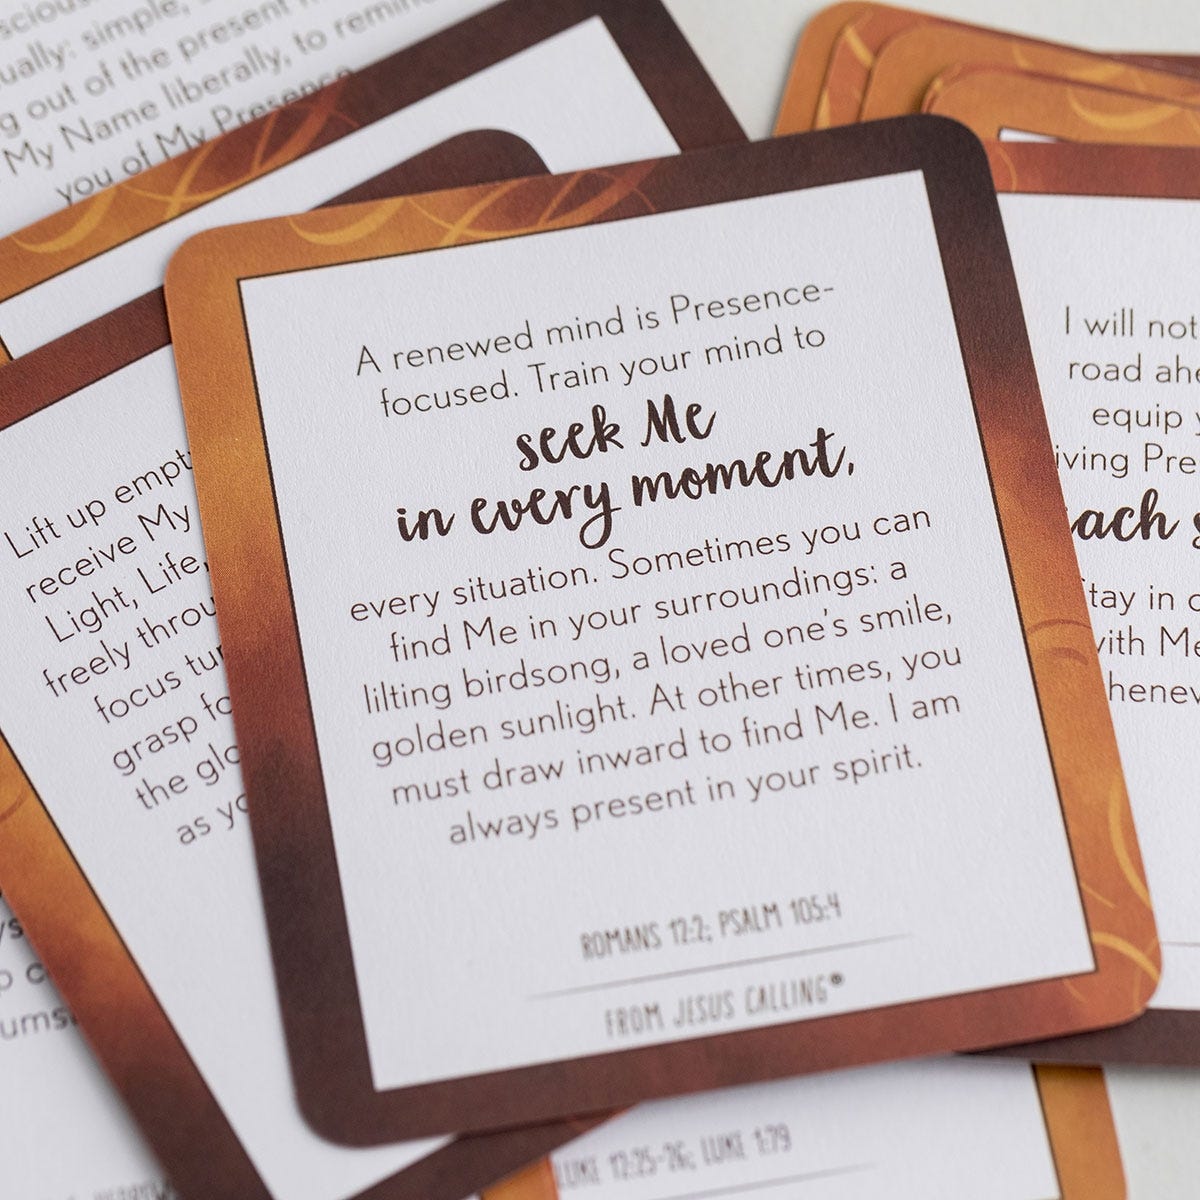 ually: simple,
g out of the present m
My Name liberally, to remind
you of My Presence
A renewed mind is Presence-
focused. Train your mind to
seek Me
in every moment,
every situation. Sometimes you can
find Me in your surroundings: a
lilting birdsong, a loved one's smile,
golden sunlight. At other times, you
must draw inward to find Me. I am
always present in your spirit.
ROMANS 12:2; PSALM 105:4
FROM JESUS CALLING®
Lift up empt
receive My
Light, Life,
freely throu
focus tur
grasp fo
the glo
as yo
I will not
road ahe
equip y
iving Pre
each
tay in c
with Me
henev
LUKE 12:25-26; LUKE 1:79